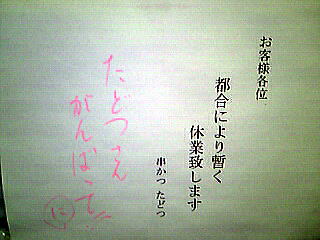 お客様各位
都合により暫く
休業致します
串かつ たどつ
たどつさん
がんばって!!
に